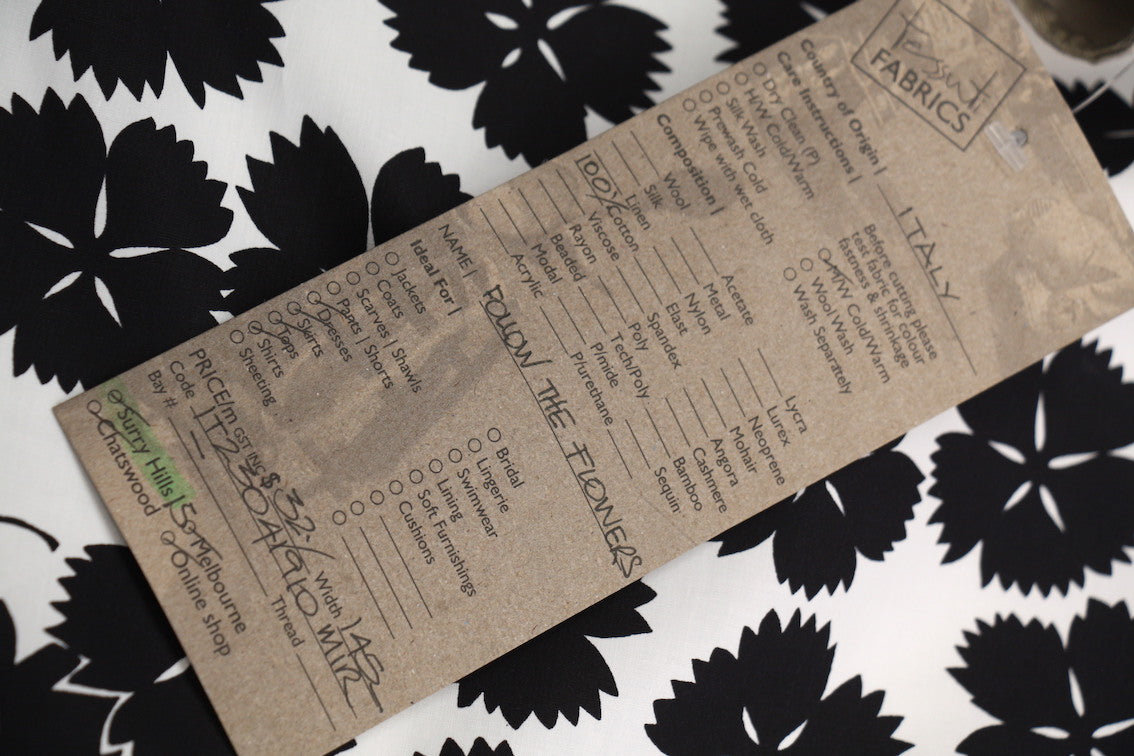 Tessuti
FABRICS
Country of Origin | ITALY
Care Instructions |
Dry Clean (P)
H/W Cold/Warm
Silk Wash
Prewash Cold
Wipe with wet cloth
Before cutting please
test fabric for colour
fastness & shrinkage
M/W Cold/Warm
Wool Wash
Wash Separately
Composition |
Wool
Silk
Linen
100% Cotton
Viscose
Rayon
Beaded
Modal
Acrylic
Acetate
Metal
Nylon
Elast
Spandex
Poly
Tech/Poly
P/mide
P/urethane
Lycra
Lurex
Neoprene
Mohair
Angora
Cashmere
Bamboo
Sequin
NAME | FOLLOW THE FLOWERS
Ideal For |
Jackets
Coats
Scarves | Shawls
Pants | Shorts
Dresses
Skirts
Tops
Shirts
Sheeting
Bridal
Lingerie
Swimwear
Lining
Soft Furnishings
Cushions
PRICE/m GST INC $32.- Width 145-
Code
Bay # Thread
Surry Hills | 50 Melbourne
Chatswood Online shop